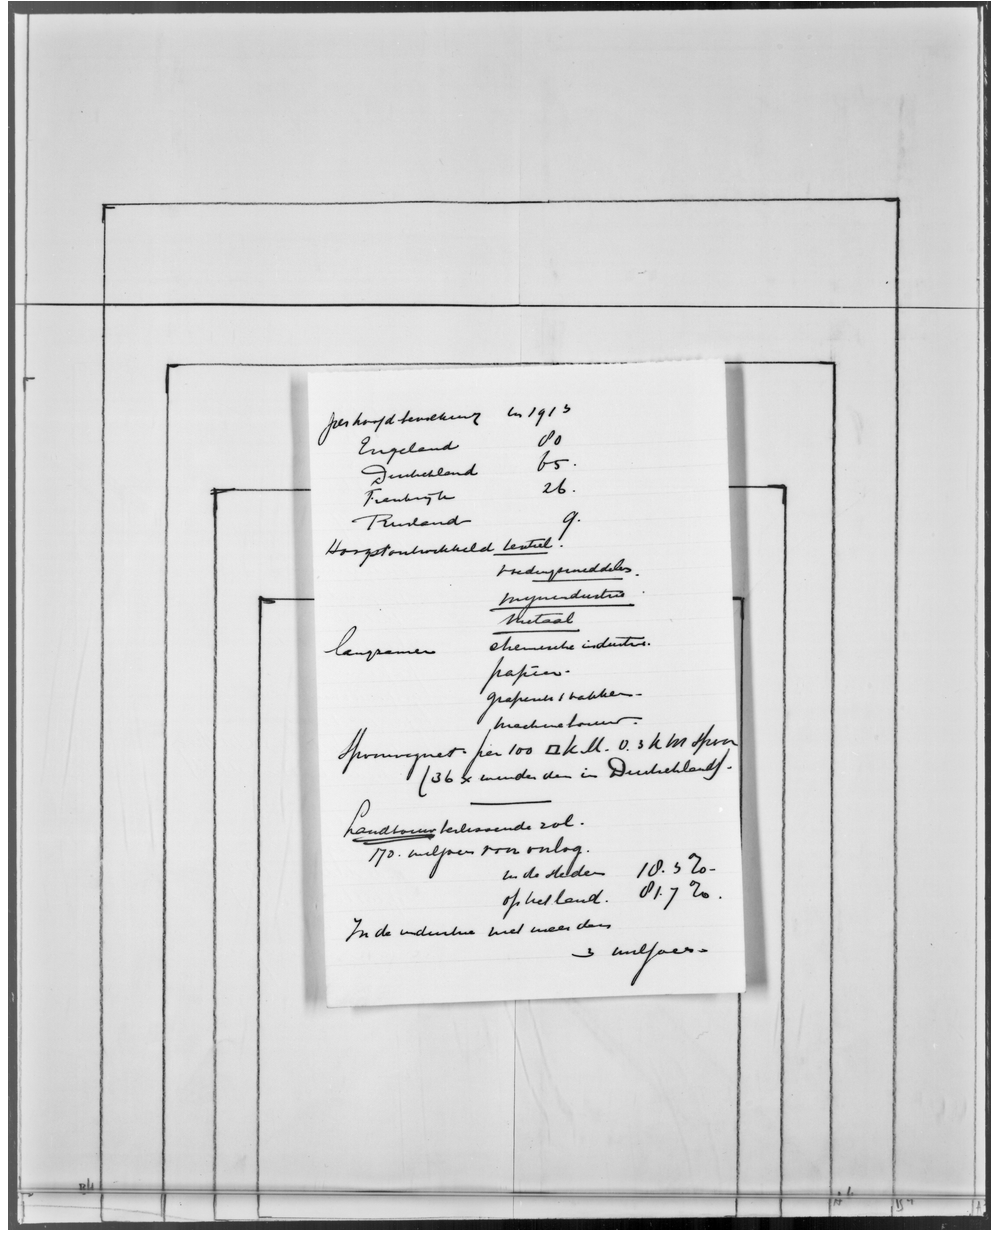 per hoofd bevolking in 1913
Engeland 80
Duitschland 65.
Frankrijk 26.
Rusland 9.
Hoogst ontwikkeld textiel.
voedingsmiddelen.
mijnindustrie
metaal
langzamer chemische industrie.
papier.
grafische vakken.
machinebouw.
Spoorwegnet per 100 □ k.M. 0.3 k M spoor
(36 x minder dan in Duitschland).
Landbouw beslissende rol.
170. miljoen voor oorlog.
in de steden 18.3 %.
op het land. 81.7 %.
In de industrie niet meer dan
3 miljoen.